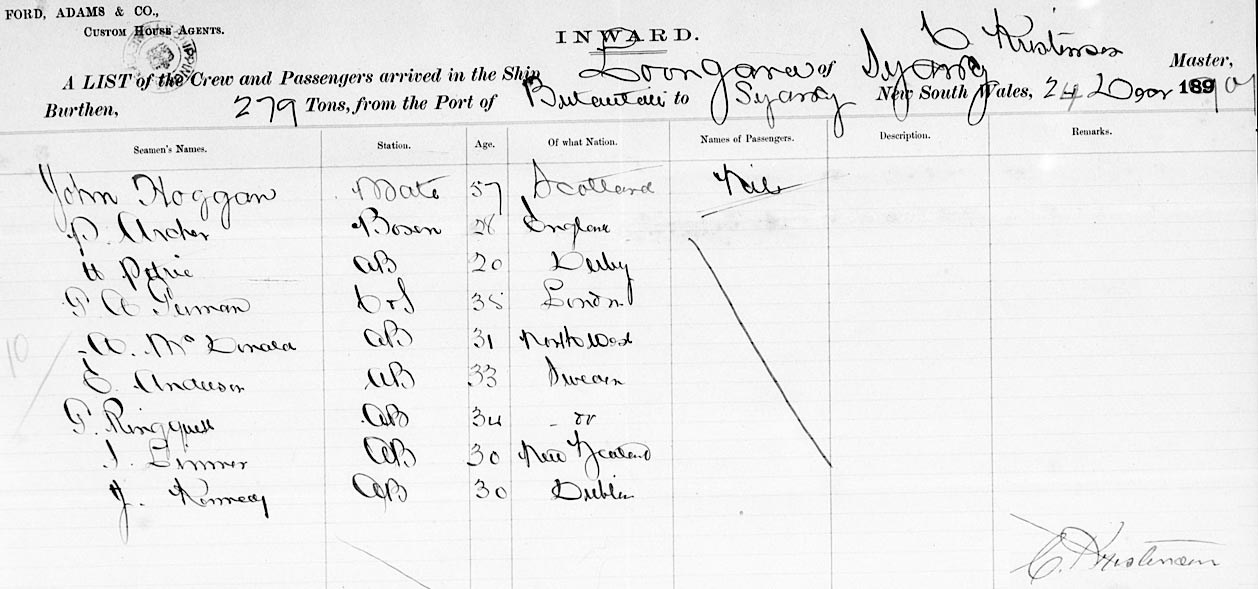 FORD, ADAMS & CO.,
CUSTOM HOUSE AGENTS.
INWARD.
A LIST of the Crew and Passengers arrived in the Ship Loongana of Sydney C Kristensen Master,
Burthen, 279 Tons, from the Port of Butaritari to Sydney New South Wales, 24 Decr 189
Seamen's Names. Station. Age. Of what Nation. Names of Passengers. Description. Remarks.
John Hoggan Mate 57 Scotland Nil
P. Archer Bosen 28 England
H Petrie AB 20 Derby
35 London
A. McDonald AB 31 North West
C. Anderson AB 33 Sweden
P. Ringquell AB 34 - do
J. AB 30 New Zealand
J. Kennedy AB 30 Dublin
10
C. Kristensen